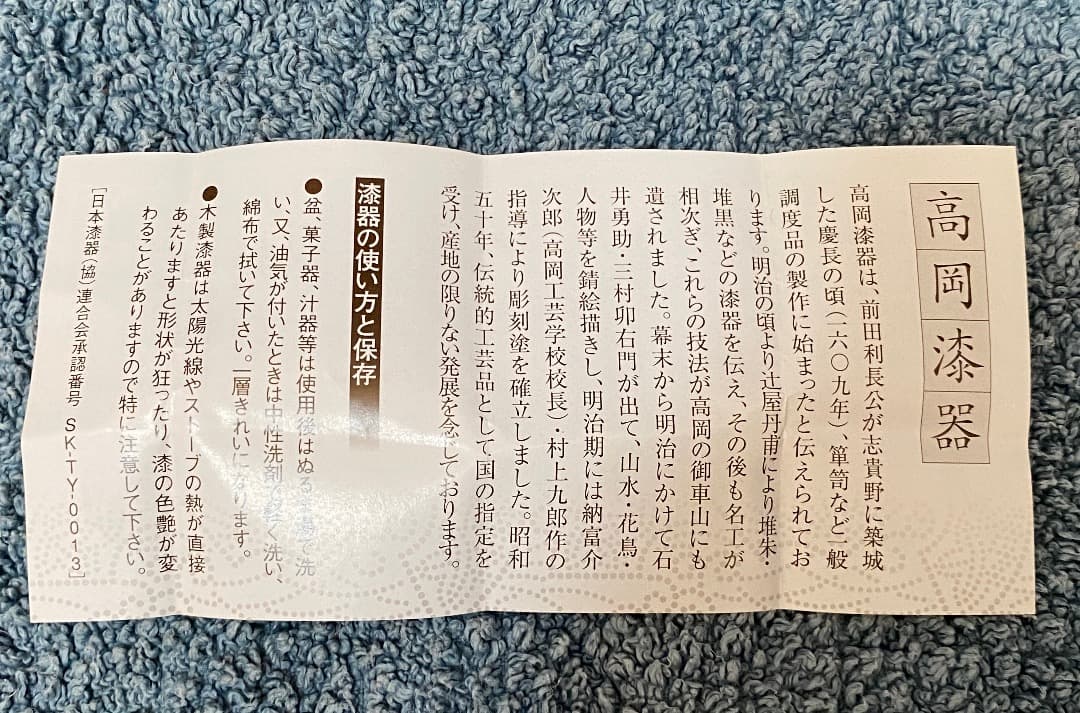 高岡漆器
高岡漆器は、前田利長公が志貴野に築城
した慶長の頃(一六〇九年)、箪笥など一般
調度品の製作に始まったと伝えられてお
ります。明治の頃より辻屋丹甫により堆朱・
堆黒などの漆器を伝え、その後も名工が
相次ぎ、これらの技法が高岡の御車山にも
遺されました。幕末から明治にかけて石
井勇助・三村卯右門が出て、山水・花鳥・
人物等を錆絵描きし、明治期には納富介
次郎(高岡工芸学校校長)・村上九郎作の
指導により彫刻塗を確立しました。昭和
五十年、伝統的工芸品として国の指定を
受け、産地の限りない発展を念じております。
漆器の使い方と保存
●盆、菓子器、汁器等は使用後はぬるま湯で洗
い、又、油気が付いたときは中性洗剤で軽く洗い、
綿布で拭いて下さい。一層きれいになります。
●木製漆器は太陽光線やストーブの熱が直接
あたりますと形状が狂ったり、漆の色艶が変
わることがありますので特に注意して下さい。
[日本漆器(協)連合会承認番号 SK-TY-0013]